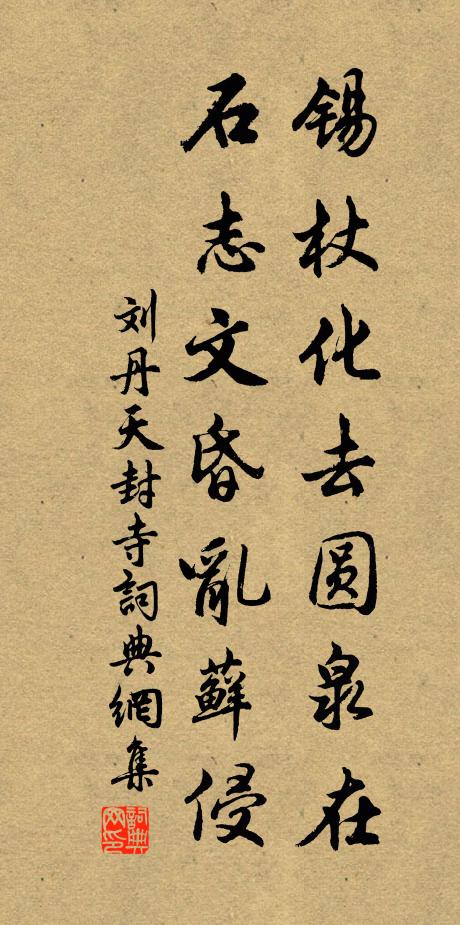 锡杖化去圆泉在
石志文昏亂蘚侵
刘丹天封寺詞典網集
詞典網印